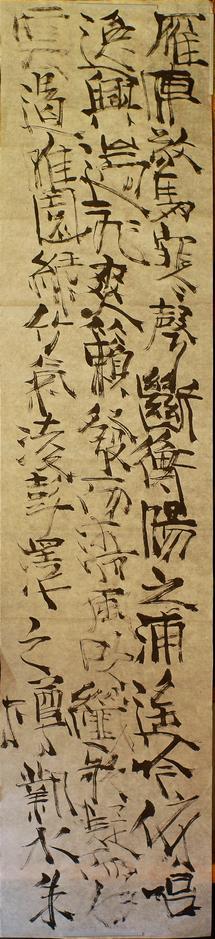 雁陣驚寒聲斷衡陽之浦遙吟俯唱
逸興遄飛爽籟發而清風纖歌凝而白
雲遏睢園綠竹氣凌彭澤之樽鄴水朱